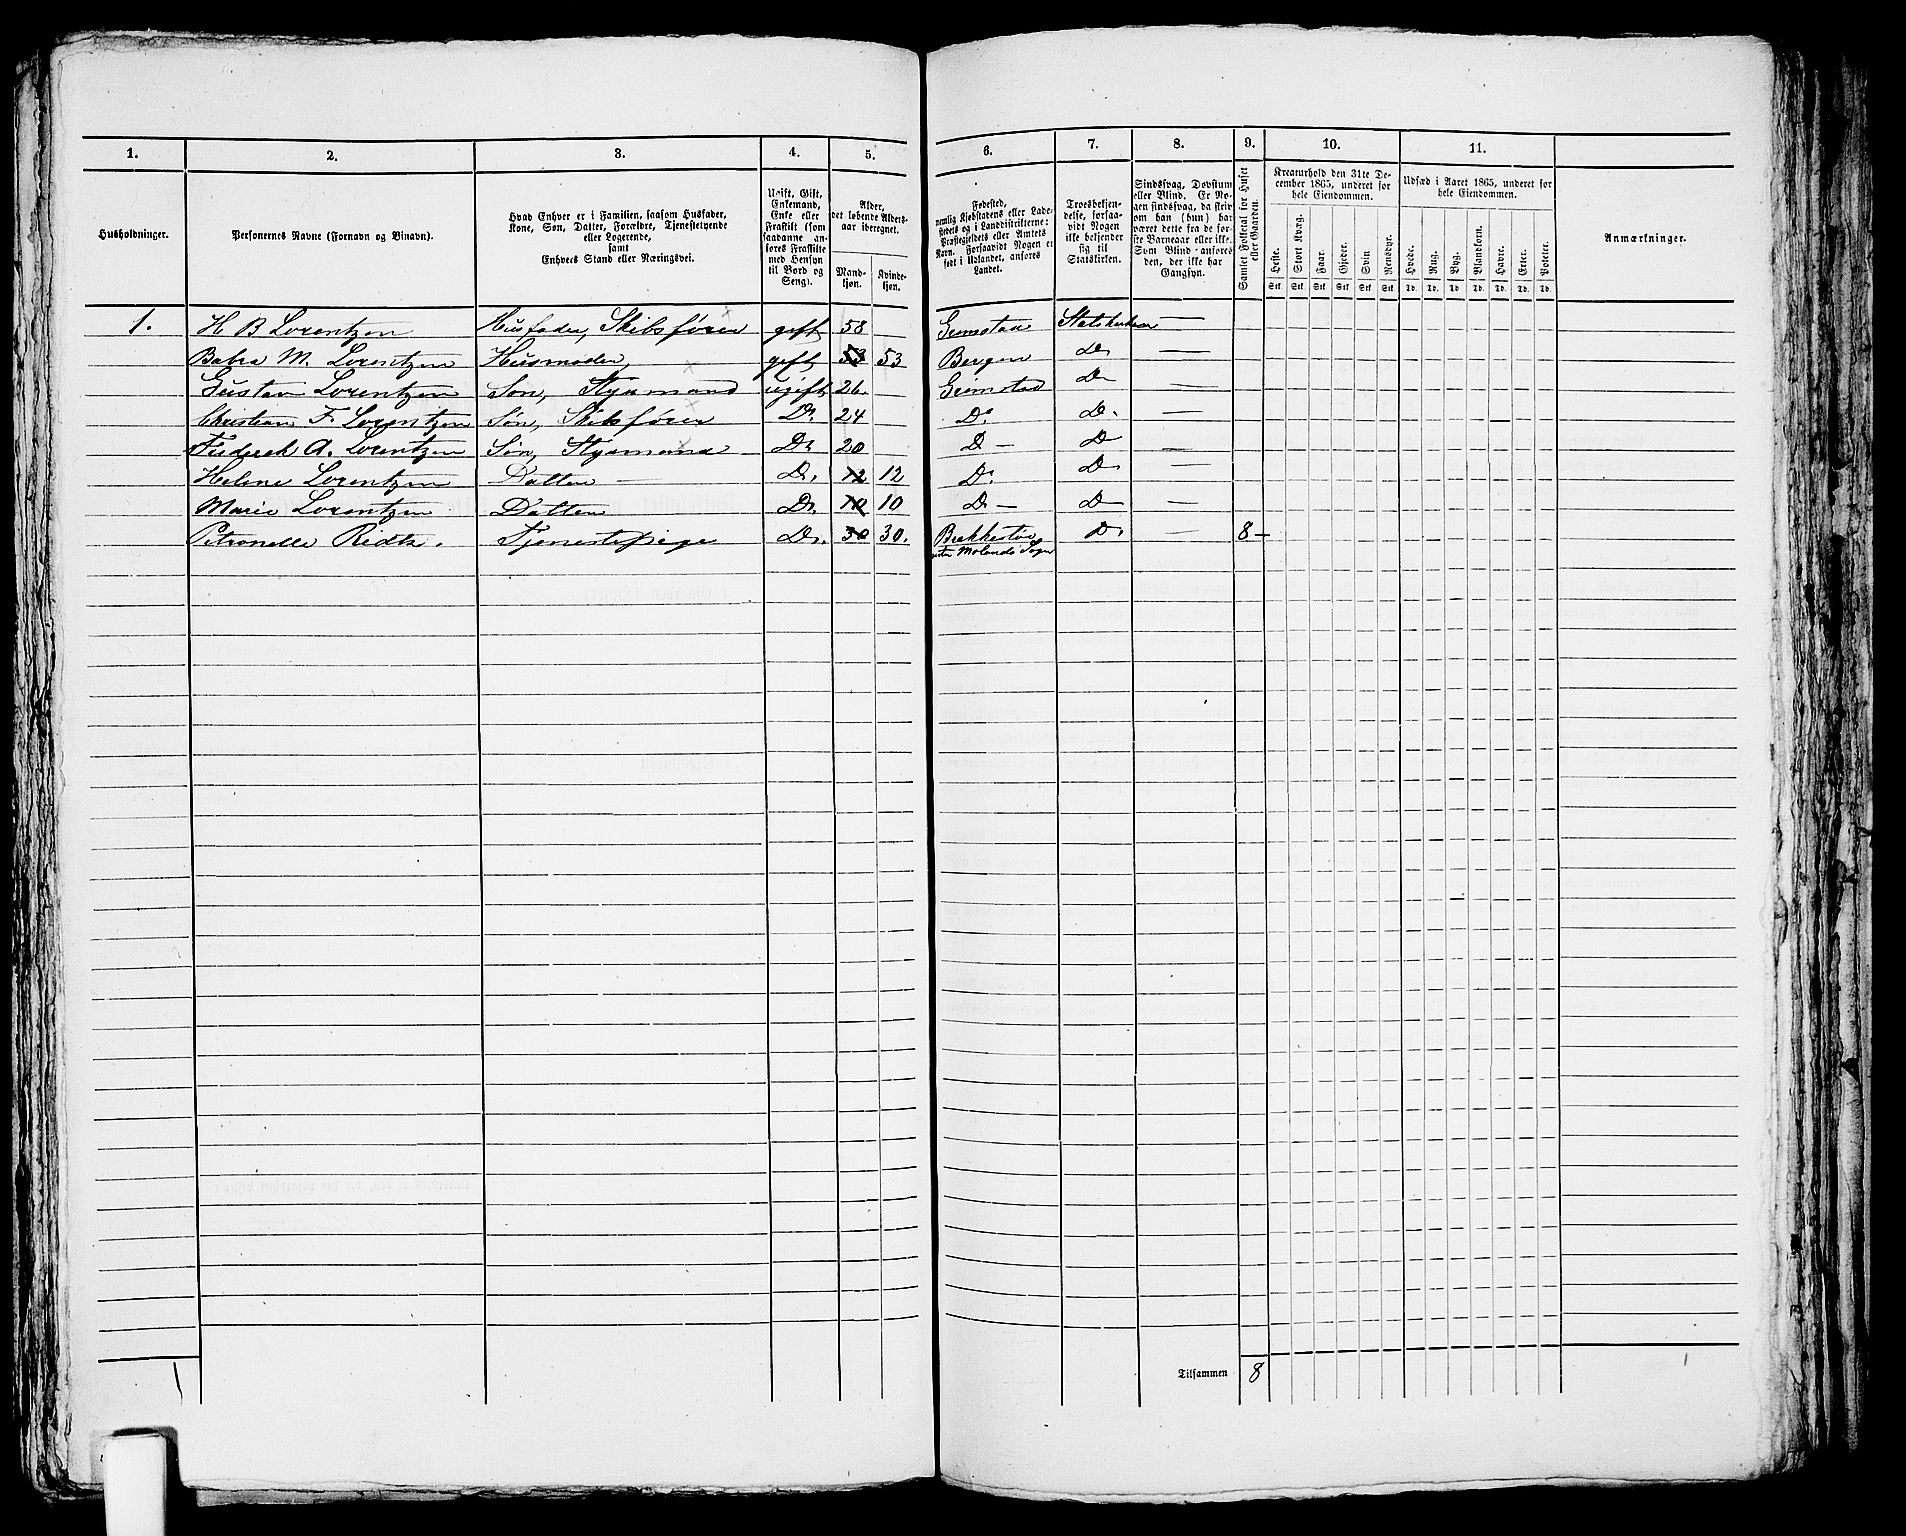 1. 2. 3. 4. 5. 6. 7. 8. 9. 10. 11.
Husholdninger.
Personernes Navne (Fornavn og Binavn).
Hvad Enhver er i Familien, saasom Husfader,
Kone, Søn, Datter, Forældre, Tjenestetyende
eller Logerende,
samt
Enhvers Stand eller Næringsvei.
Ugift, Gift,
Enkemand,
Enke eller
Fraskilt (som
saadanne an-
føres Fraskilte
med Hensyn
til Bord og
Seng).
Alder,
det løbende Alders-
aar iberegnet.
Mand-
kjøn.
Kvinde-
kjøn.
Fødested,
nemlig Kjøbstadens eller Lade-
stedets og i Landdistrikterne:
Præstegjeldets eller Amtets
Navn. Forsaavidt Nogen er
født i Udlandet, anføres
Landet.
Troesbekjen-
delse, forsaa-
vidt Nogen
ikke bekjender
sig til
Statskirken.
Sindssvag, Døvstum
eller Blind. Er No-
gen sindssvag, da skriv
om han (hun) har
været dette fra de før-
ste Barneaar eller ikke.
Som Blind anføres
den, der ikke har
Gangsyn.
Samlet Folketal for Huset
eller Gaarden.
Kreaturhold den 31te De-
cember 1865, underet for
hele Eiendommen.
Heste. Stort Kvæg. Faar. Gjeder. Svin Rensdyr.
Stk Stk Stk Stk Stk Stk
Udsæd i Aaret 1865, underet for
hele Eiendommen.
Hvede. Rug. Byg. Blandkorn. Havre. Erter. Poteter.
Td. Td. Td. Td. Td. Td. Td.
Anmærkninger.
1. H B Lorentzen Husfader, Skibsfører gift 58 Grimstad Statskirken —
Babra M. Lorentzen Husmoder gift 53 53 Bergen Do —
Gustav Lorentzen Søn, Styrmand ugift 26. Grimstad Do —
Christian F Lorentzen Søn, Skibsfører Do. 24 Do Do. —
Frederik A. Lorentzen Søn, Styrmand Do 20 Do — Do —
Helene Lorentzen Datter — Do. 12 12 Do Do —
Marie Lorentzen Datter Do. 10 10 Do — Do —
Petronelle Datter Tjenestepige Do. 30 30. Brekkestø Do. — 8 —
Molands Sogn
Tilsammen 8